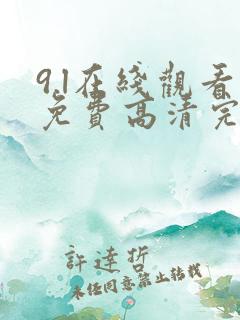 9.1在綫觀看
免費高清完
許達哲
未经同意禁止转载